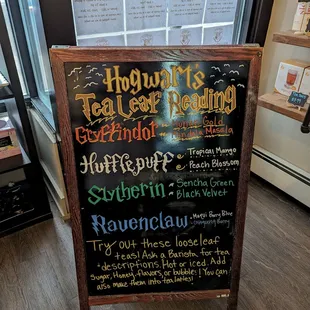 Hogwart's
Tea Leaf Reading
Gryffindor
Gold
Masala
Hufflepuff
Tropical Mango
Peach Blossom
Slytherin
Sencha Green
Black Velvet
Ravenclaw
Berry Blue
Try out these looseleaf
teas! Ask a Barista for tea
descriptions. Hot or iced. Add
Sugar, Honey, flavors, or bubble! You can
also make them into tea lattes!